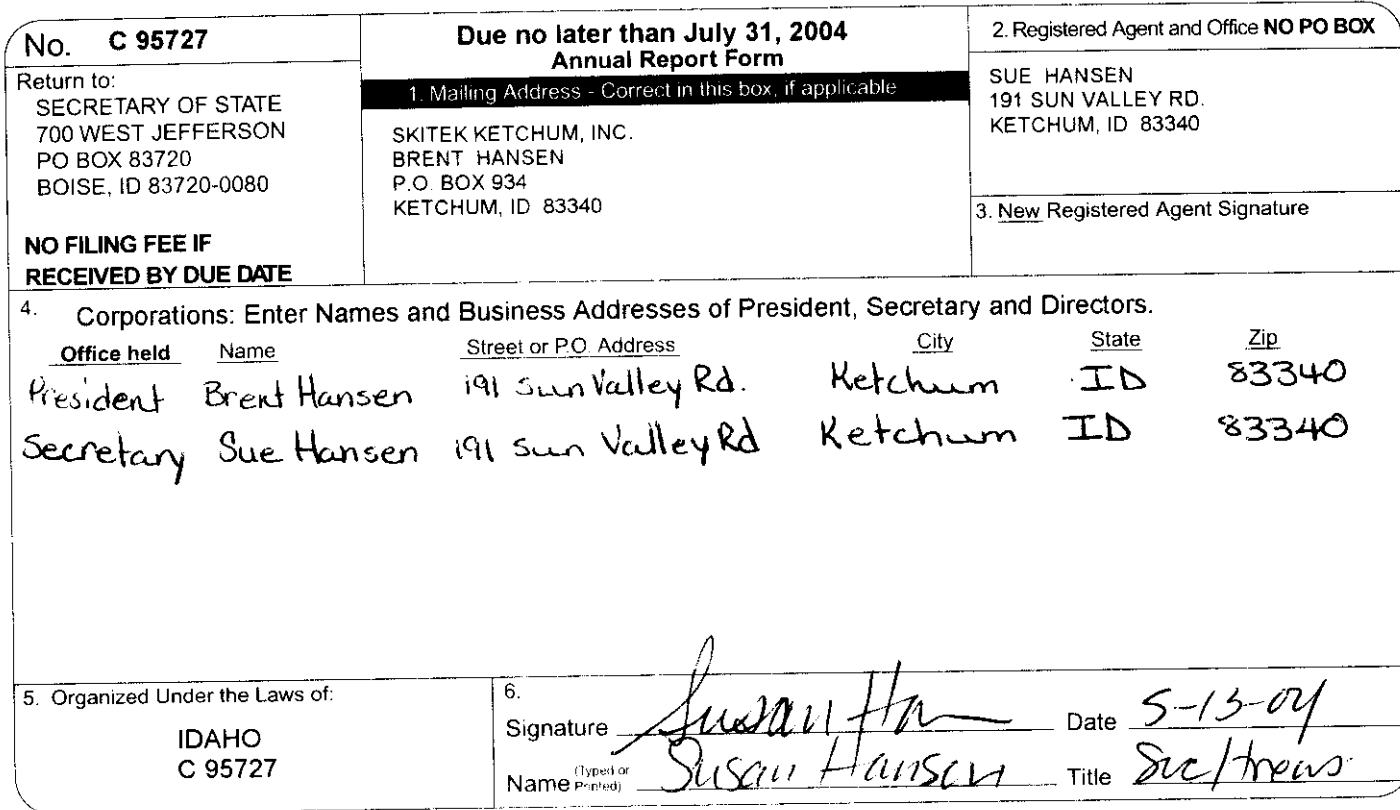 No. C 95727
Return to:
SECRETARY OF STATE
700 WEST JEFFERSON
PO BOX 83720
BOISE, ID 83720-0080
NO FILING FEE IF
RECEIVED BY DUE DATE
Due no later than July 31, 2004
Annual Report Form
1. Mailing Address - Correct in this box, if applicable
SKITEK KETCHUM, INC.
BRENT HANSEN
P.O. BOX 934
KETCHUM, ID 83340
2. Registered Agent and Office NO PO BOX
SUE HANSEN
191 SUN VALLEY RD.
KETCHUM, ID 83340
3. New Registered Agent Signature
4. Corporations: Enter Names and Business Addresses of President, Secretary and Directors.
Office held Name Street or P.O. Address City State Zip
President Brent Hansen 191 Sun Valley Rd. Ketchum ID 83340
Secretary Sue Hansen 191 Sun Valley Rd Ketchum ID 83340
5. Organized Under the Laws of:
IDAHO
C 95727
6.
Signature Susan Ha Date 5-13-04
Name (Typed or Printed) Susan Hansen Title Sec/treas